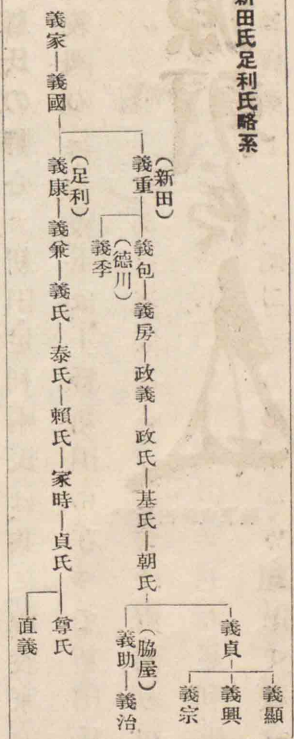 新田氏足利氏略系
義家―義國
(新田)
義重
義包―義房―政義―政氏―基氏―朝氏
義貞
義顯
義興
義宗
(脇屋)
義助―義治
(德川)
義季
(足利)
義康―義兼―義氏―泰氏―賴氏―家時―貞氏
尊氏
直義